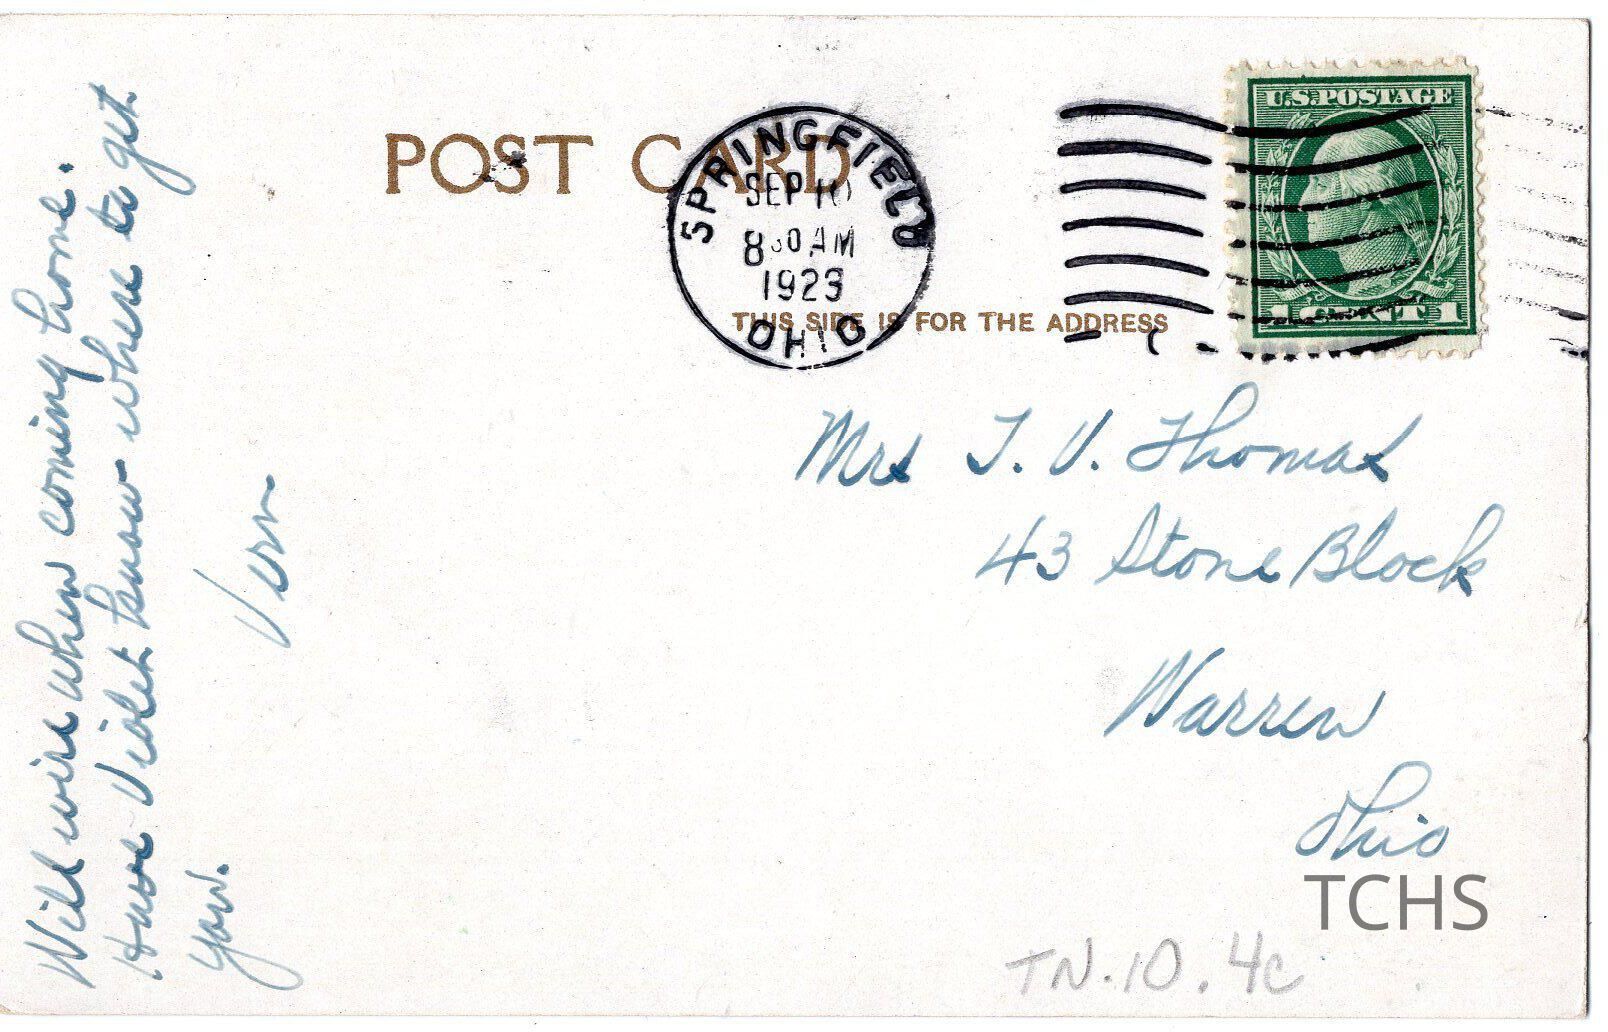 POST CARD
SPRINGFIELD
SEP 10
8 30 AM
1923
OHIO
THIS SIDE IS FOR THE ADDRESS
U.S. POSTAGE
1 CENT 1
Mrs T. V. Thomas
43 Stone Block
Warren
Ohio
Will wire when coming home.
Have Violet know where to get
you.
Vern
TCHS
TN.10.4c